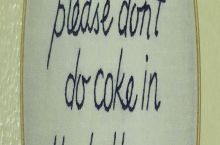 please don't
do coke in